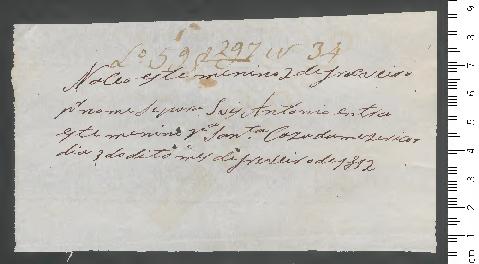 Lº 59 f 297 nº 34
Naceo este menino 2 de fraveiro
pr nome se pora Luis António entra
este menino pª Santª Caza da mezericor
dia 3 do dito mes de fraveiro de 1812